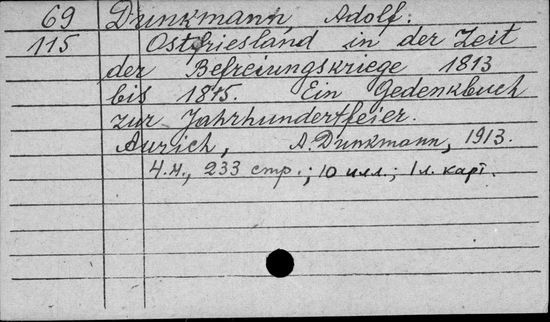 69 Dunkmann Adolf.
115 Ostfriesland in der Zeit
der Befreiungskriege 1813
bis 1815. Ein Gedenkbuch
zur Jahrhundertfeier.
Aurich, A. Dunkmann, 1913.
4.н., 233 стр.; 10 илл.; 1 л. карт.